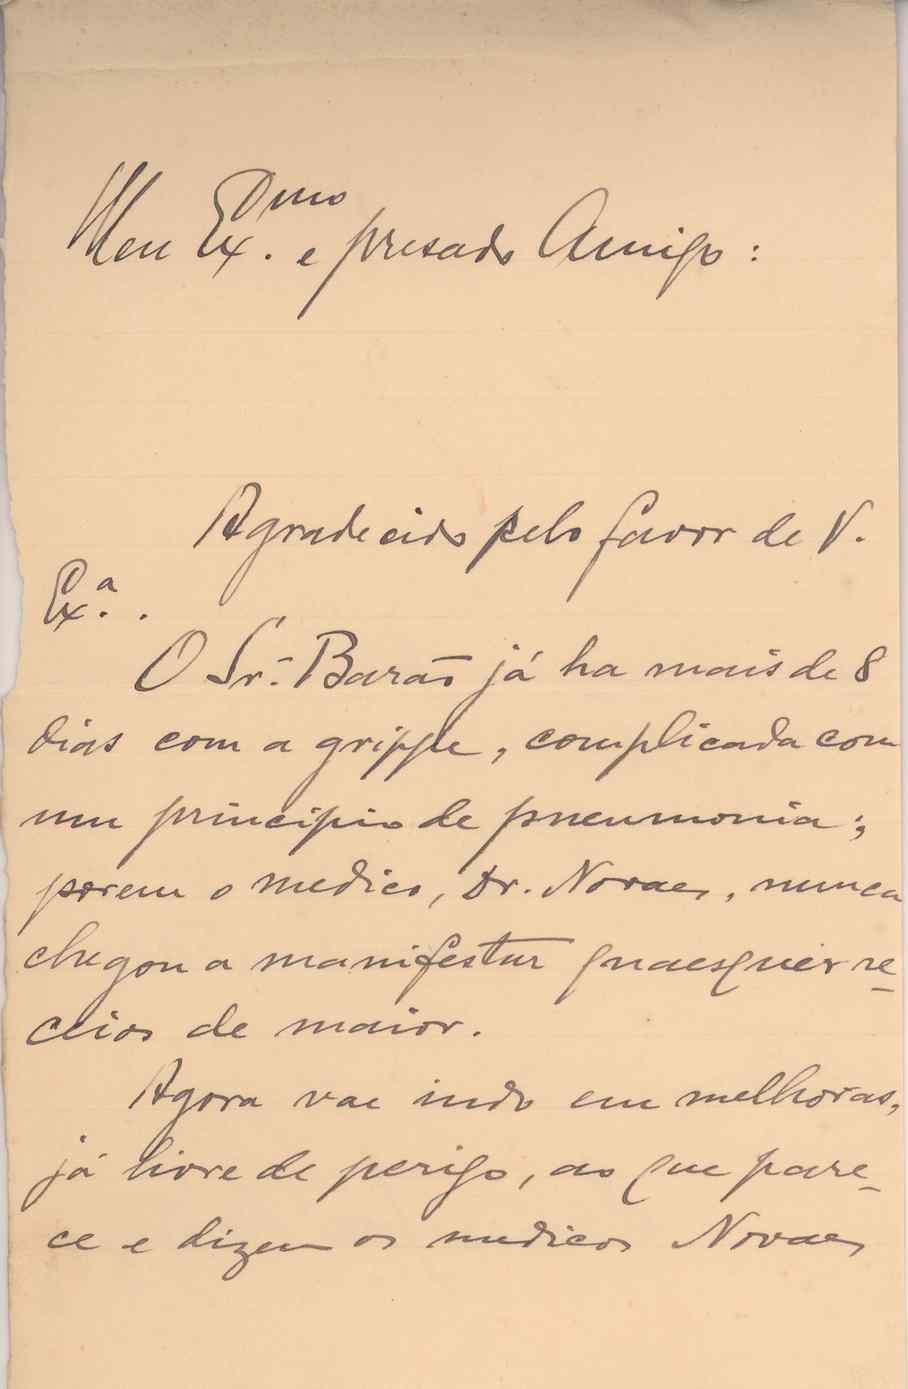 Meu Ex.mo e presado Amigo:
Agradecido pelo favor de V.
Ex.a.
O Sr. Barão já ha mais de 8
dias com a grippe, complicada com
um principio de pneumonia;
porem o medico, Dr. Novaes, nunca
chegou a manifestar quaesquer re-
ceios de maior.
Agora vae indo em melhoras,
já livre de perigo, ao que pare-
ce e dizem os medicos Novaes